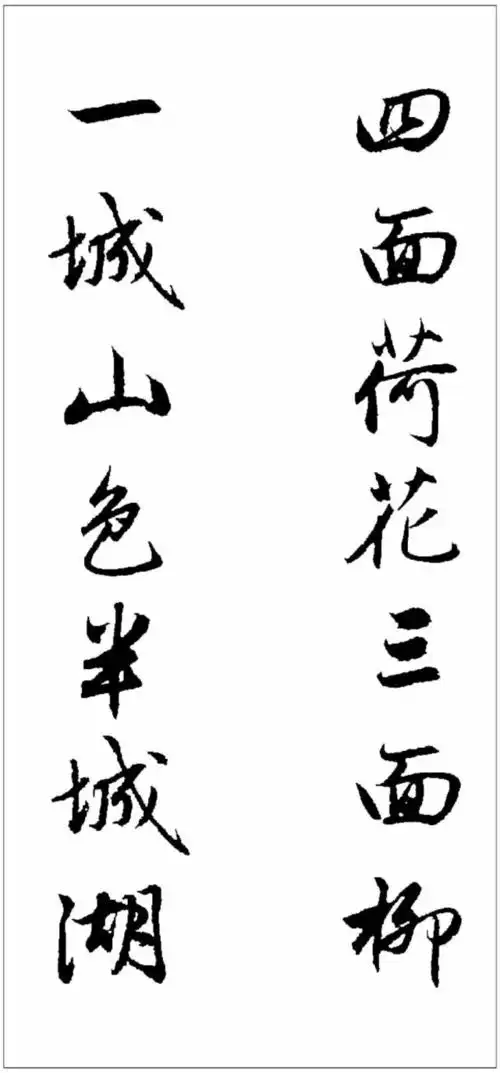 四面荷花三面柳
一城山色半城湖